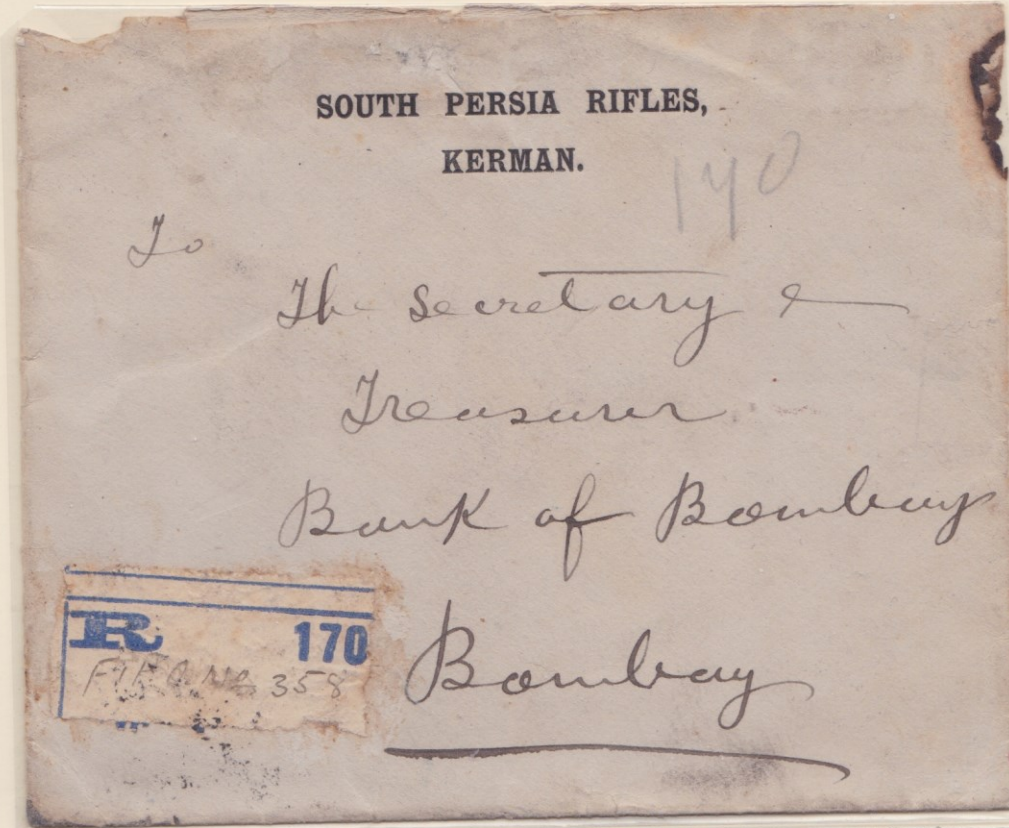 SOUTH PERSIA RIFLES,
KERMAN.
170
To
The Secretary &
Treasurer
Bank of Bombay
Bombay
R 170
No 358